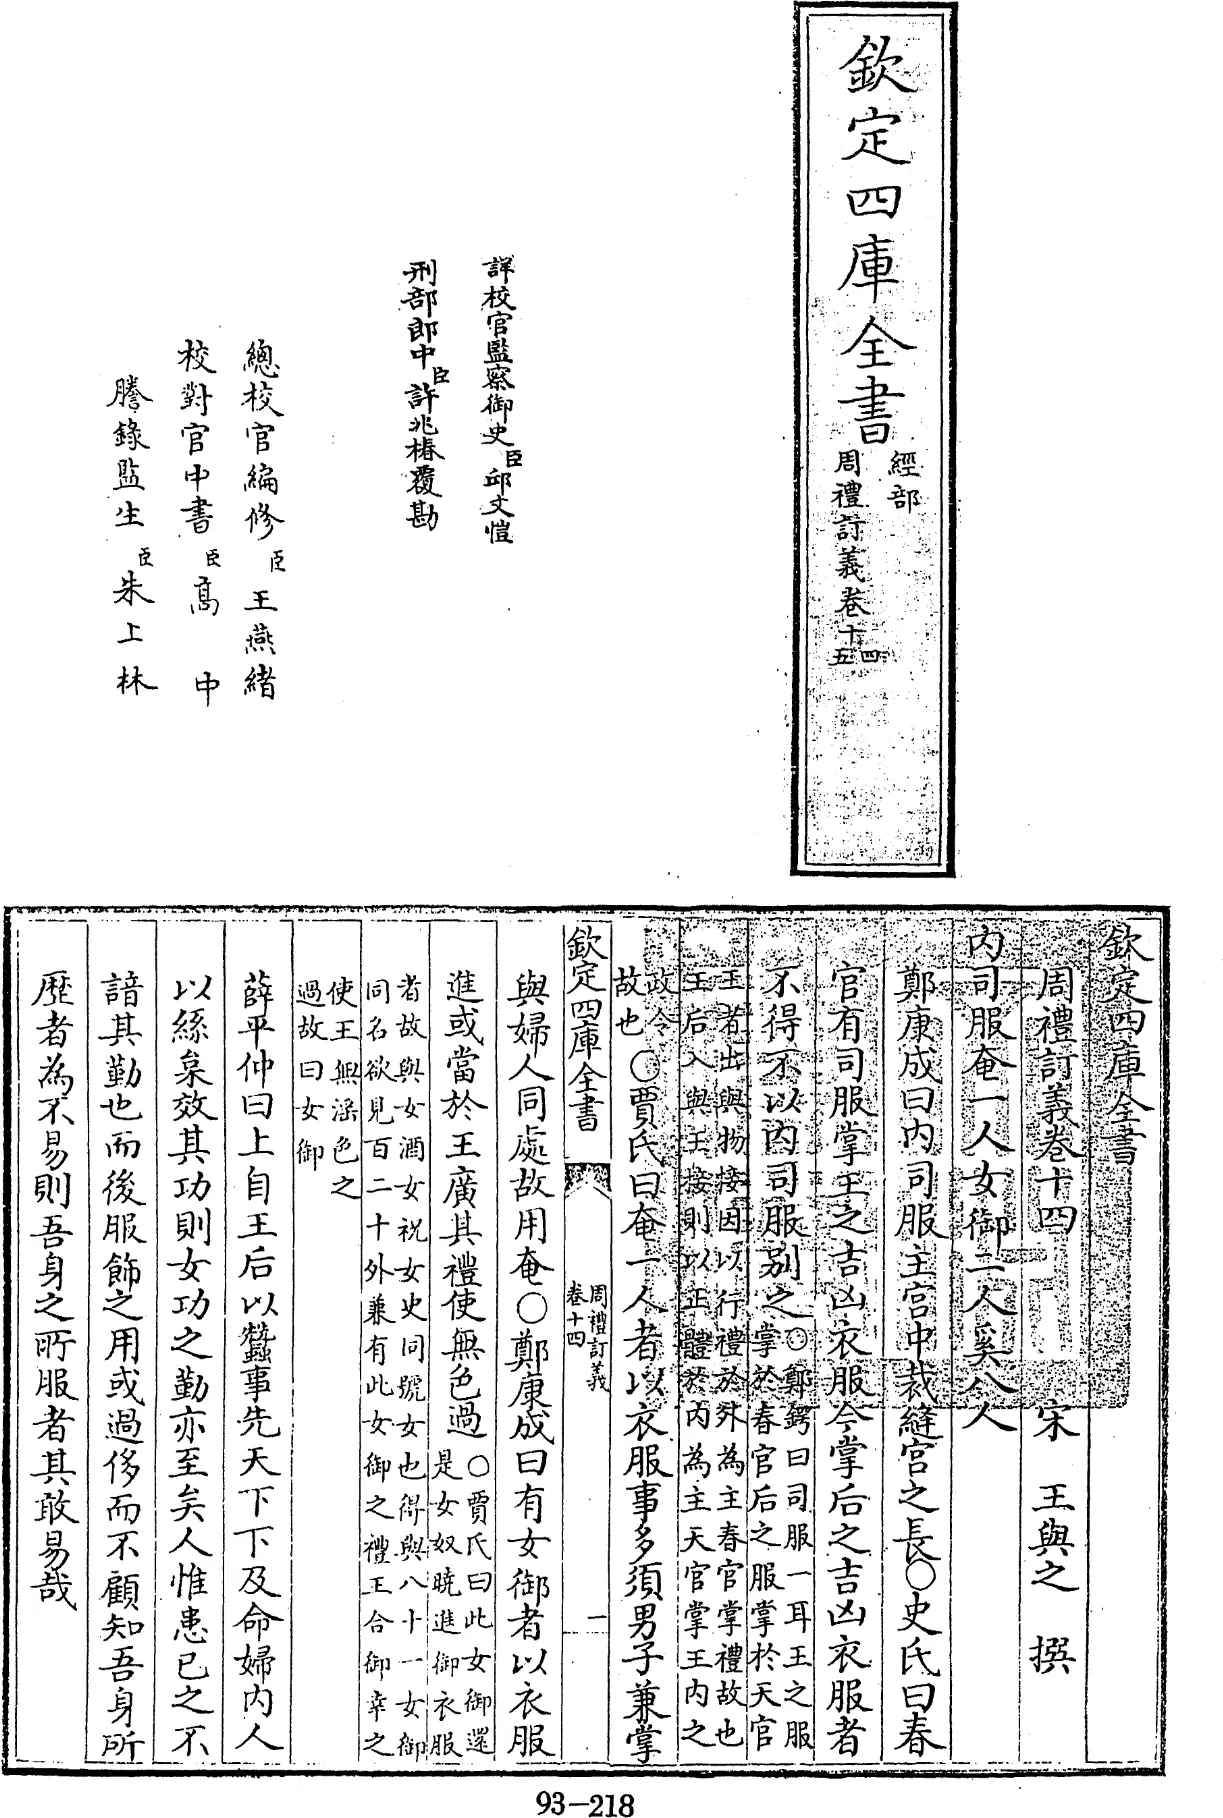 欽定四庫全書
經部
周禮訂義卷十四
五
詳校官監察御史臣邱文愷
刑部郎中臣許兆椿覆勘
總校官編修臣王燕緒
校對官中書臣高中
謄錄監生臣朱上林
欽定四庫全書
周禮訂義卷十四 宋 王與之 撰
內司服奄一人女御二人奚八人
鄭康成曰內司服主宮中裁縫宮之長○史氏曰春
官有司服掌王之吉凶衣服今掌后之吉凶衣服者
不得不以內司服別之○鄭鍔曰司服一耳王之服
掌於春官后之服掌於天官
王者出與物接因以行禮於外為主春官掌禮故也
王后入與王接則以正體於內為主天官掌王內之
政令
故也○賈氏曰奄一人者以衣服事多須男子兼掌
欽定四庫全書
周禮訂義
卷十四
一
與婦人同處故用奄○鄭康成曰有女御者以衣服
進或當於王廣其禮使無色過○賈氏曰此女御還
是女奴曉進御衣服
者故與女酒女祝女史同號女也得與八十一女御
同名欲見百二十外兼有此女御之禮王合御幸之
使王無淫色之
過故曰女御
薛平仲曰上自王后以蠶事先天下下及命婦內人
以絲枲效其功則女功之勤亦至矣人惟患己之不
諳其勤也而後服飾之用或過侈而不顧知吾身所
歷者為不易則吾身之所服者其敢易哉
93-218